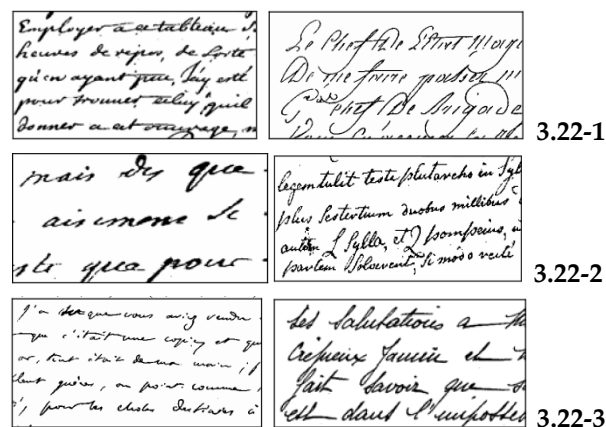 Employer a ce tableau
heures de repos, de sorte
qu'en ayant peu, j'ay esté
pour trouver celuy qu'il
donner a cet ouvrage,
Le Chef De L'Etat Major
De me faire passer
Gral Chef De Brigade
3.22-1
mais des que
aisement Se
que pour
legem tulit teste plutarcho in Syll
plus Sestertium duobus millibus
autem L Sylla, et Q pompeius,
partem Solverent, Si modo
3.22-2
j'ai que vous aviez vendu
que c'était une copie, et
or, tout était de ma main;
guères, on point comme
pour les choses destinées à
ses Salutations a
Crépieux Jamin et
fait Savoir que
est dans l'imposs
3.22-3